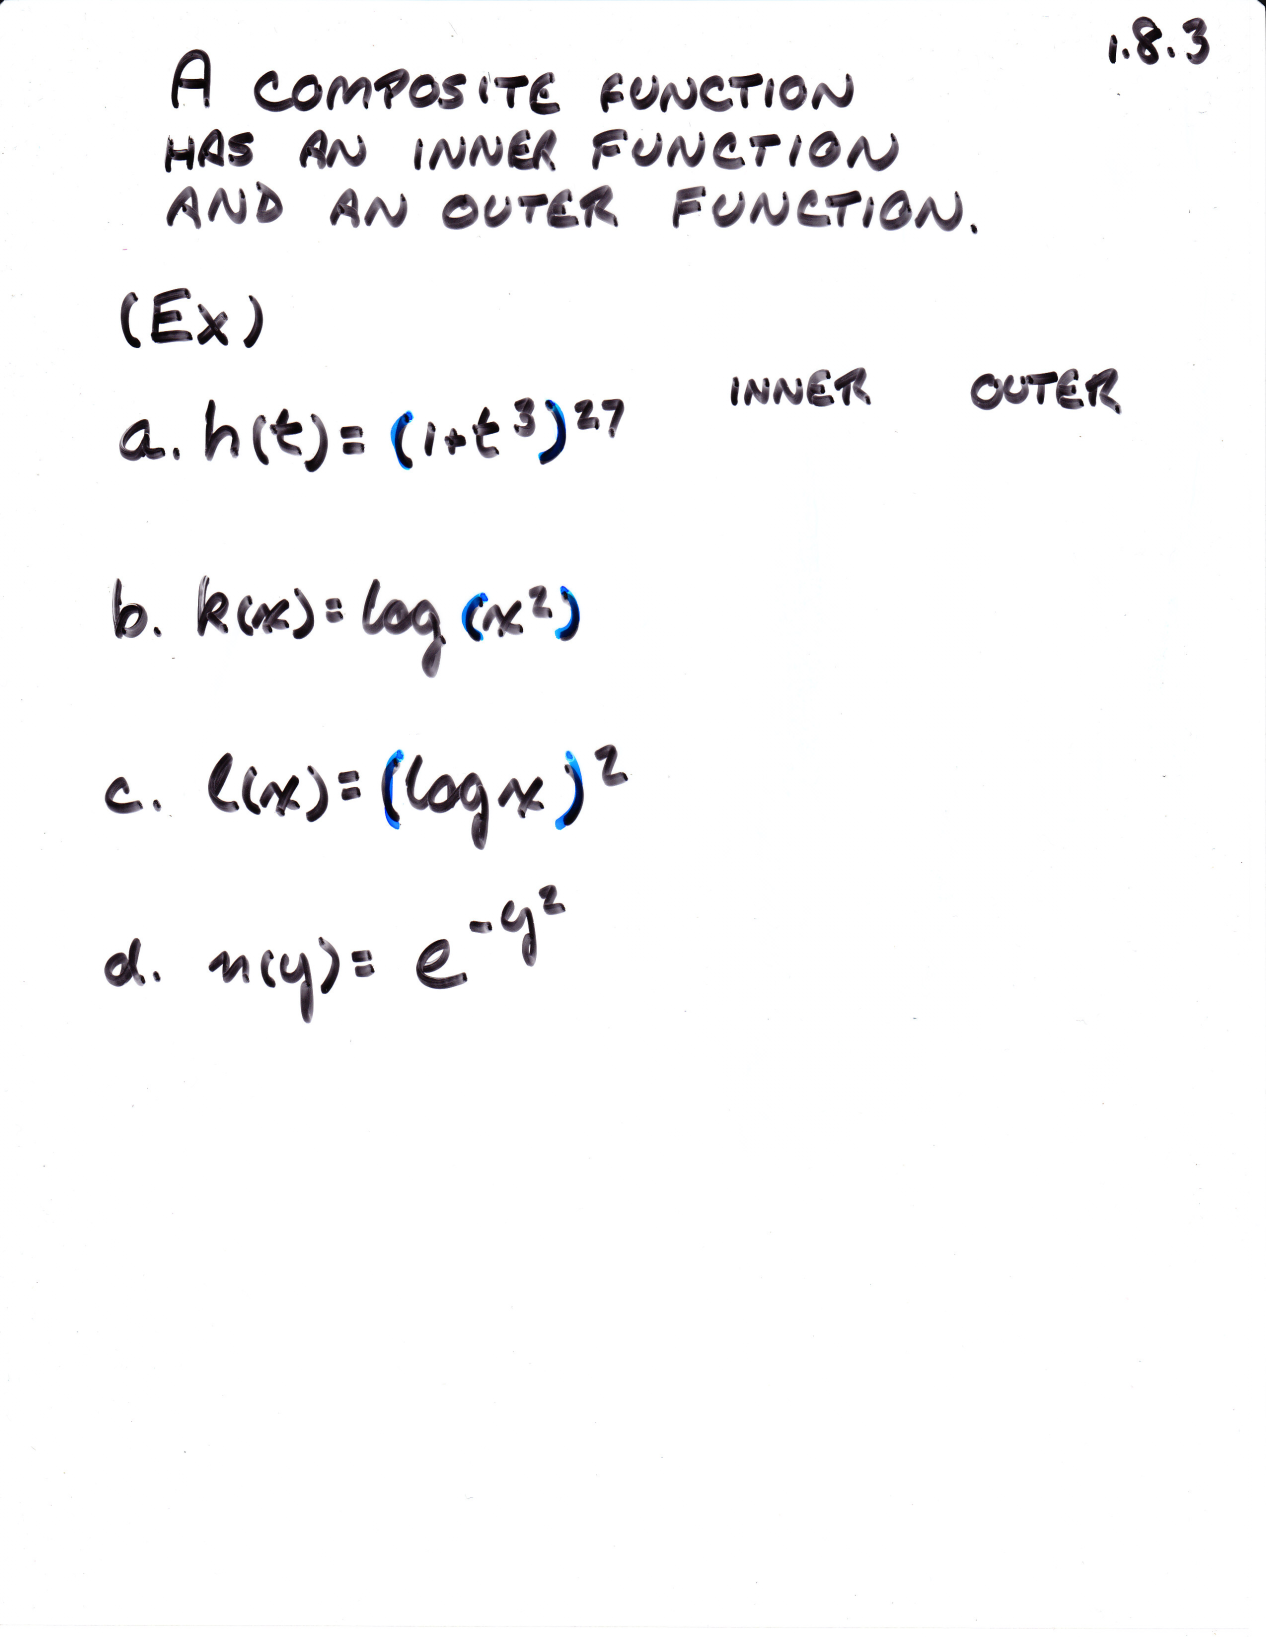 1.8.3
A COMPOSITE FUNCTION
HAS AN INNER FUNCTION
AND AN OUTER FUNCTION.
(Ex)
INNER OUTER
a. h(t) = (1+t³)²⁷
b. k(x) = log (x²)
c. l(x) = (log x)²
d. n(y) = e^-y²